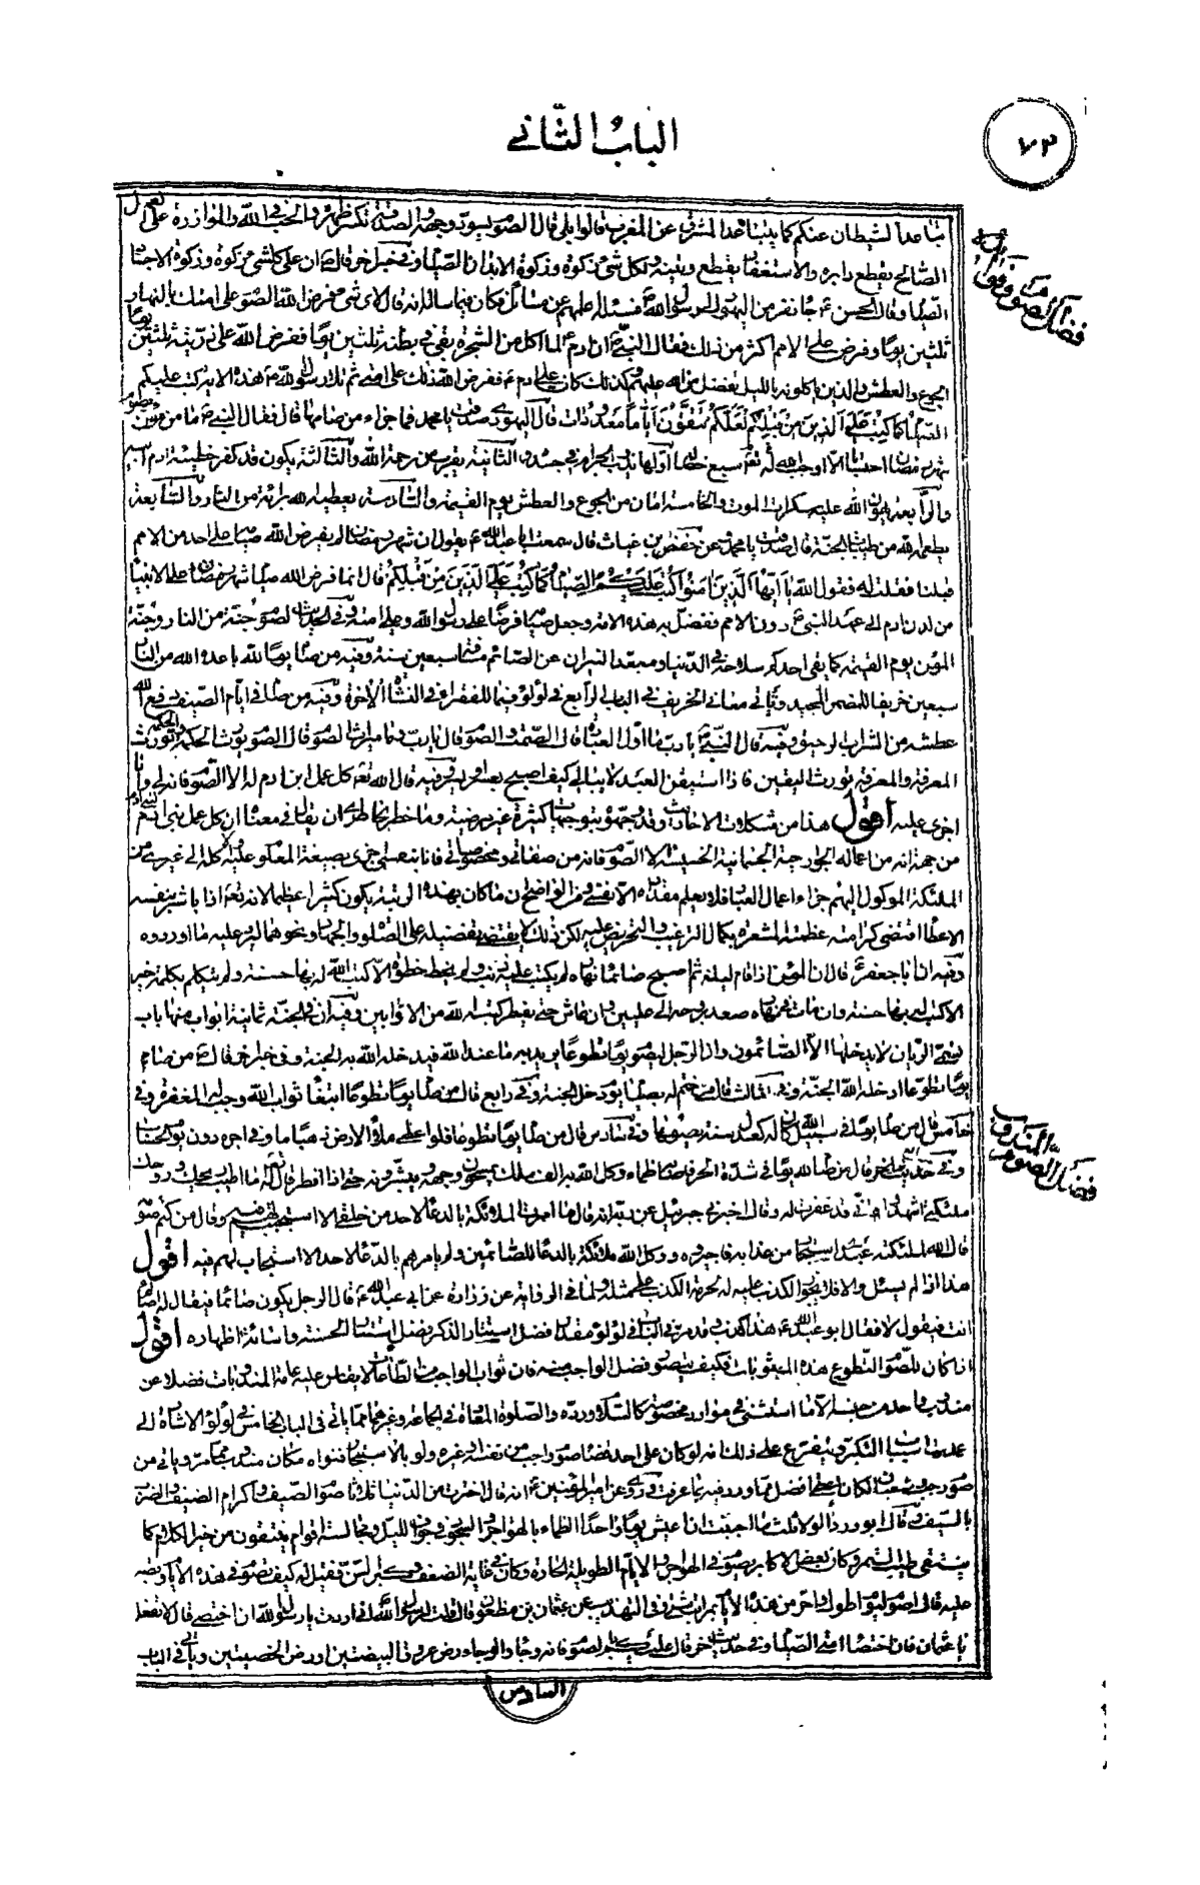 ٧٣
الباب الثانى
تباعد الشيطان عنكم كما يتباعد المشرق عن المغرب قالوا بلى قال الصوم يسود وجهه والصدقة تكسر ظهره والحب فى الله والموازرة على العمل
الصالح يقطع دابره والاستغفار يقطع وتينه ولكل شىء زكوة وزكوة الابدان الصيام وفى خبر اخر قال ان على كل شىء زكوة وزكوة الاجساد
فضائل الصوم وفوائده
الصيام وقال الحسن ع جاء نفر من اليهود الى رسول الله فسئله اعلمهم عن مسائل فكان فيما سئله انه قال لاى شىء فرض الله الصوم على امتك بالنهار
ثلثين يوما وفرض على الامم اكثر من ذلك فقال النبى ان ادم لما اكل من الشجرة بقى فى بطنه ثلثين يوما ففرض الله على ذريته ثلثين يوما
الجوع والعطش والذين ياكلونه بالليل تفضل من الله عليهم وكذلك كان على ادم ففرض الله ذلك على امتى ثم تلا رسول الله هذه الاية كتب عليكم
الصيام كما كتب على الذين من قبلكم لعلكم تتقون اياما معدودات قال اليهودى صدقت يا محمد فما جزاء من صامها قال فقال النبى ما من مؤمن يصوم
شهر رمضان احتسابا الا اوجب الله له سبع خصال اولها يذوب الحرام فى جسده والثانية يقرب من رحمة الله والثالثة يكون قد كفر خطيئة ادم ابيه
والرابعة يهون الله عليه سكرات الموت والخامسة امان من الجوع والعطش يوم القيمة والسادسة يعطيه الله برائة من النار والسابعة
يطعمه الله من طيبات الجنة قال صدقت يا محمد وعن حفص بن غياث قال سمعت ابا عبد الله ع يقول ان شهر رمضان لم يفرض الله صيامه على احد من الامم
قبلنا فقلت له فقول الله يا ايها الذين امنوا كتب عليكم الصيام كما كتب على الذين من قبلكم قال انما فرض الله صيام شهر رمضان على الانبياء
من لدن ادم الى عهد النبى دون الامم ففضل به هذه الامة وجعل صيامه فرضا على رسول الله وعلى امته وفى الحديث الصوم جنة من النار وجنة
المؤمن يوم القيمة كما يقى احدكم سلاحه فى الدنيا ومبعد النيران عن الصائم مسافة سبعين سنة وفيه من صام يوما لله باعده الله من النار
سبعين خريفا للمضمر المجيد وياتى معانى الخريف فى الباب الرابع فى لؤلؤ فيما للفقراء فى النشاة الاخرة وفيه من صام فى ايام الصيف رفع الله
عطشه من الشراب الرحيق وفيه قال النبى يا رب ما اول العبادة قال الصمت والصوم قال يا رب وما ميراث الصوم قال الصوم يورث الحكمة والحكمة تورث
المعرفة والمعرفة تورث اليقين فاذا استيقن العبد لا يبالى كيف اصبح بعسر ام بيسر وفيه قال الله تع كل عمل ابن ادم له الا الصوم فانه لى وانا
اجزى عليه اقول هذا من مشكلات الاحاديث وقد وجهوه بتوجيهات كثيرة غير مرضية وما خطر بخاطرى ان يقال فى معناه ان كل عمل بنى ادم
من جهة انه من اعماله الجوارحية الجسمانية الا الصوم فانه من صفاتى ومخصوص بى فانا بنفسى اجزى
الملئكة الموكول اليهم جزاء اعمال العباد فلا يعلم مقداره الا بفضلى ومن الواضح ان ما كان بهذه المرتبة يكون كثيرا عظيما لانه تع اذا باشر بنفسه
الاعطاء اقتضى كرامته عظمته المشعرة بكمال الترغيب والتحريض عليه لكن ذلك لا يقتضى تفضيله على الصلوة والجهاد ونحوهما ليرد عليه ما اوردوه
وفيه ان ابا جعفر قال ان المؤمن اذا قام ليلة ثم اصبح صائما نهاره لم يكتب عليه ذنب ولم يخط خطوة الا كتب الله له بها حسنة ولم يتكلم بكلمة خير
الا كتب له بها حسنة وان مات فى نهاره صعد بروحه الى عليين وان عاش حتى يفطر كتبه الله من الاوابين وفيه ان فى الجنة ثمانية ابواب منها باب
يسمى الريان لا يدخلها الا الصائمون وان الرجل ليصوم يوما تطوعا يريد به ما عند الله فيدخله الله به الجنة وفى خبر اخر قال من صام
يوما تطوعا ادخله الله الجنة وفى الثالث قال من ختم له بصيام يوم دخل الجنة وفى رابع قال من صام يوما تطوعا ابتغاء ثواب الله وجبت له المغفرة وفى
فضائل الصوم المندوب
خامس قال من صام يوما فى سبيل الله كان له كعدل سنة يصومها وفى سادس قال من صام يوما تطوعا فلو اعطى ملؤ الارض ذهبا ما وفى اجره دون يوم الحساب
وفى حديث اخر قال من صام لله يوما فى شدة الحر فاصابه ظماء وكل الله به الف ملك يمسحون وجهه ويبشرونه حتى اذا افطر قال له ما اطيب ريحك وروحك
ملئكتى اشهدوا انى قد غفرت له وقال اخبرنى جبرئيل عن ربه انه قال ما امرت الملائكة بالدعاء لاحد من خلقى الا استجبت لهم فيه وقال من كتم صومه
قال الله لملئكته عبدى استجار من عذابى فاجيروه ووكل الله ملائكته بالدعاء للصائمين ولم يامرهم بالدعاء لاحد الا استجاب لهم فيه اقول
هذا اذا لم يسئل والا فلا يجوز الكذب عليه لحرمة الكذب على مثله ولما فى الرواية عن زرارة عن ابى عبد الله ع قال الرجل يكون صائما فيقال له اصائم
انت فيقول لا فقال ابو عبد الله ع هذا كذب وقد مر فى الباب فى لؤلؤ مقدار فضل استتار الذكر وفضل استتار الحسنة واسائة اظهاره اقول
اذا كان للصوم التطوع هذه المثوبات فكيف يتصور فضل الواجب منه فان ثواب الواجب من الطاعات لا يقاس عليه عامة المندوبات فضلا عن
مندوب واحد من جنسه الا ما استثنى فى موارد مخصوصة كالسلام ورده والصلوة المعادة فى الجماعة وغيرهما مما ياتى فى الباب الخامس فى لؤلؤ الاشارة الى
عمدة اسباب التكبر ويتفرع على ذلك انه لو كان على احد قضاء صوم واجب من نفسه او غيره ولو بالاستيجار فنواه مكان مندوب مما مر وياتى من
صوم رجب وشعبان لكان اعظم وافضل مما ورد فيه بما عرفت وروى عن امير المؤمنين انه قال اخترت من الدنيا ثلاثا صوم الصيف واكرام الضيف والضرب
بالسيف وقال ابو درداء لولا ثلث ما احببت ان اعيش يوما واحدا الظماء بالهواجر والسجود فى جوف الليل ومجالسة اقوام ينتقون من خير الكلام كما
ينتقى طيب الثمر وكان بعض الاكابر يصوم فى الهواجر والايام الطويلة الحارة وكان فى غاية الضعف وكبر السن فقيل له كيف تصوم فى هذه الايام وتصبر
عليه قال اصوم ليوم اطول واحر من هذه الايام وفى التهذيب عن عثمان بن مظعون قال قلت لرسول الله انى اردت يا رسول الله ان اختصى قال لا تفعل
يا عثمان فان اختصاء امتى الصيام وفى حديث اخر قال عليكم بالصوم فانه وجاء والوجاء رض عروق البيضتين او رض الخصيتين وياتى فى الباب
السادس